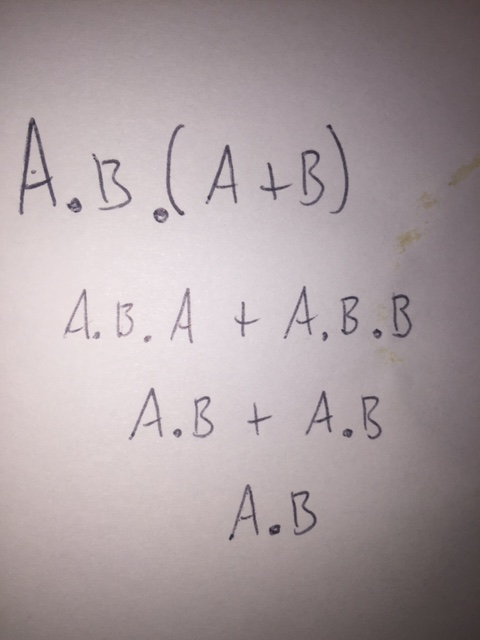 A.B.(A+B)
A.B.A + A.B.B
A.B + A.B
A.B